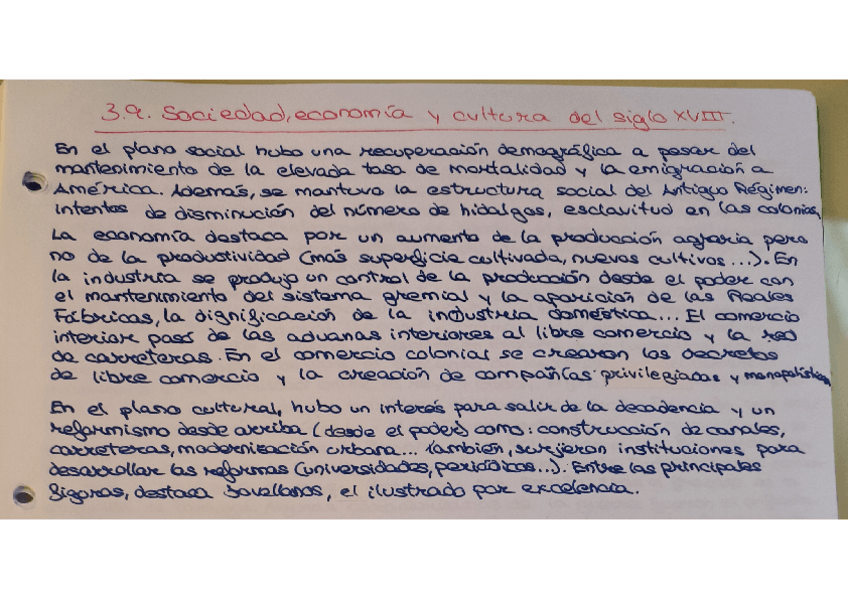 3.9. Sociedad, economía y cultura del siglo XVIII.
En el plano social hubo una recuperación demográfica a pesar del
mantenimiento de la elevada tasa de mortalidad y la emigración a
América. Además, se mantuvo la estructura social del Antiguo Régimen:
intentos de disminución del número de hidalgos, esclavitud en las colonias.
La economía destaca por un aumento de la producción agraria pero
no de la productividad (más superficie cultivada, nuevos cultivos...). En
la industria se produjo un control de la producción desde el poder con
el mantenimiento del sistema gremial y la aparición de las Reales
Fábricas, la dignificación de la industria doméstica... El comercio
interior pasó de las aduanas interiores al libre comercio y la red
de carreteras. En el comercio colonial se crearon los decretos
de libre comercio y la creación de compañías privilegiadas y monopolísticas
En el plano cultural, hubo un interés para salir de la decadencia y un
reformismo desde arriba (desde el poder) como: construcción de canales,
carreteras, modernización urbana... también, surjieron instituciones para
desarrollar las reformas (universidades, periódicos...). Entre las principales
figuras, destaca Jovellanos, el ilustrado por excelencia.